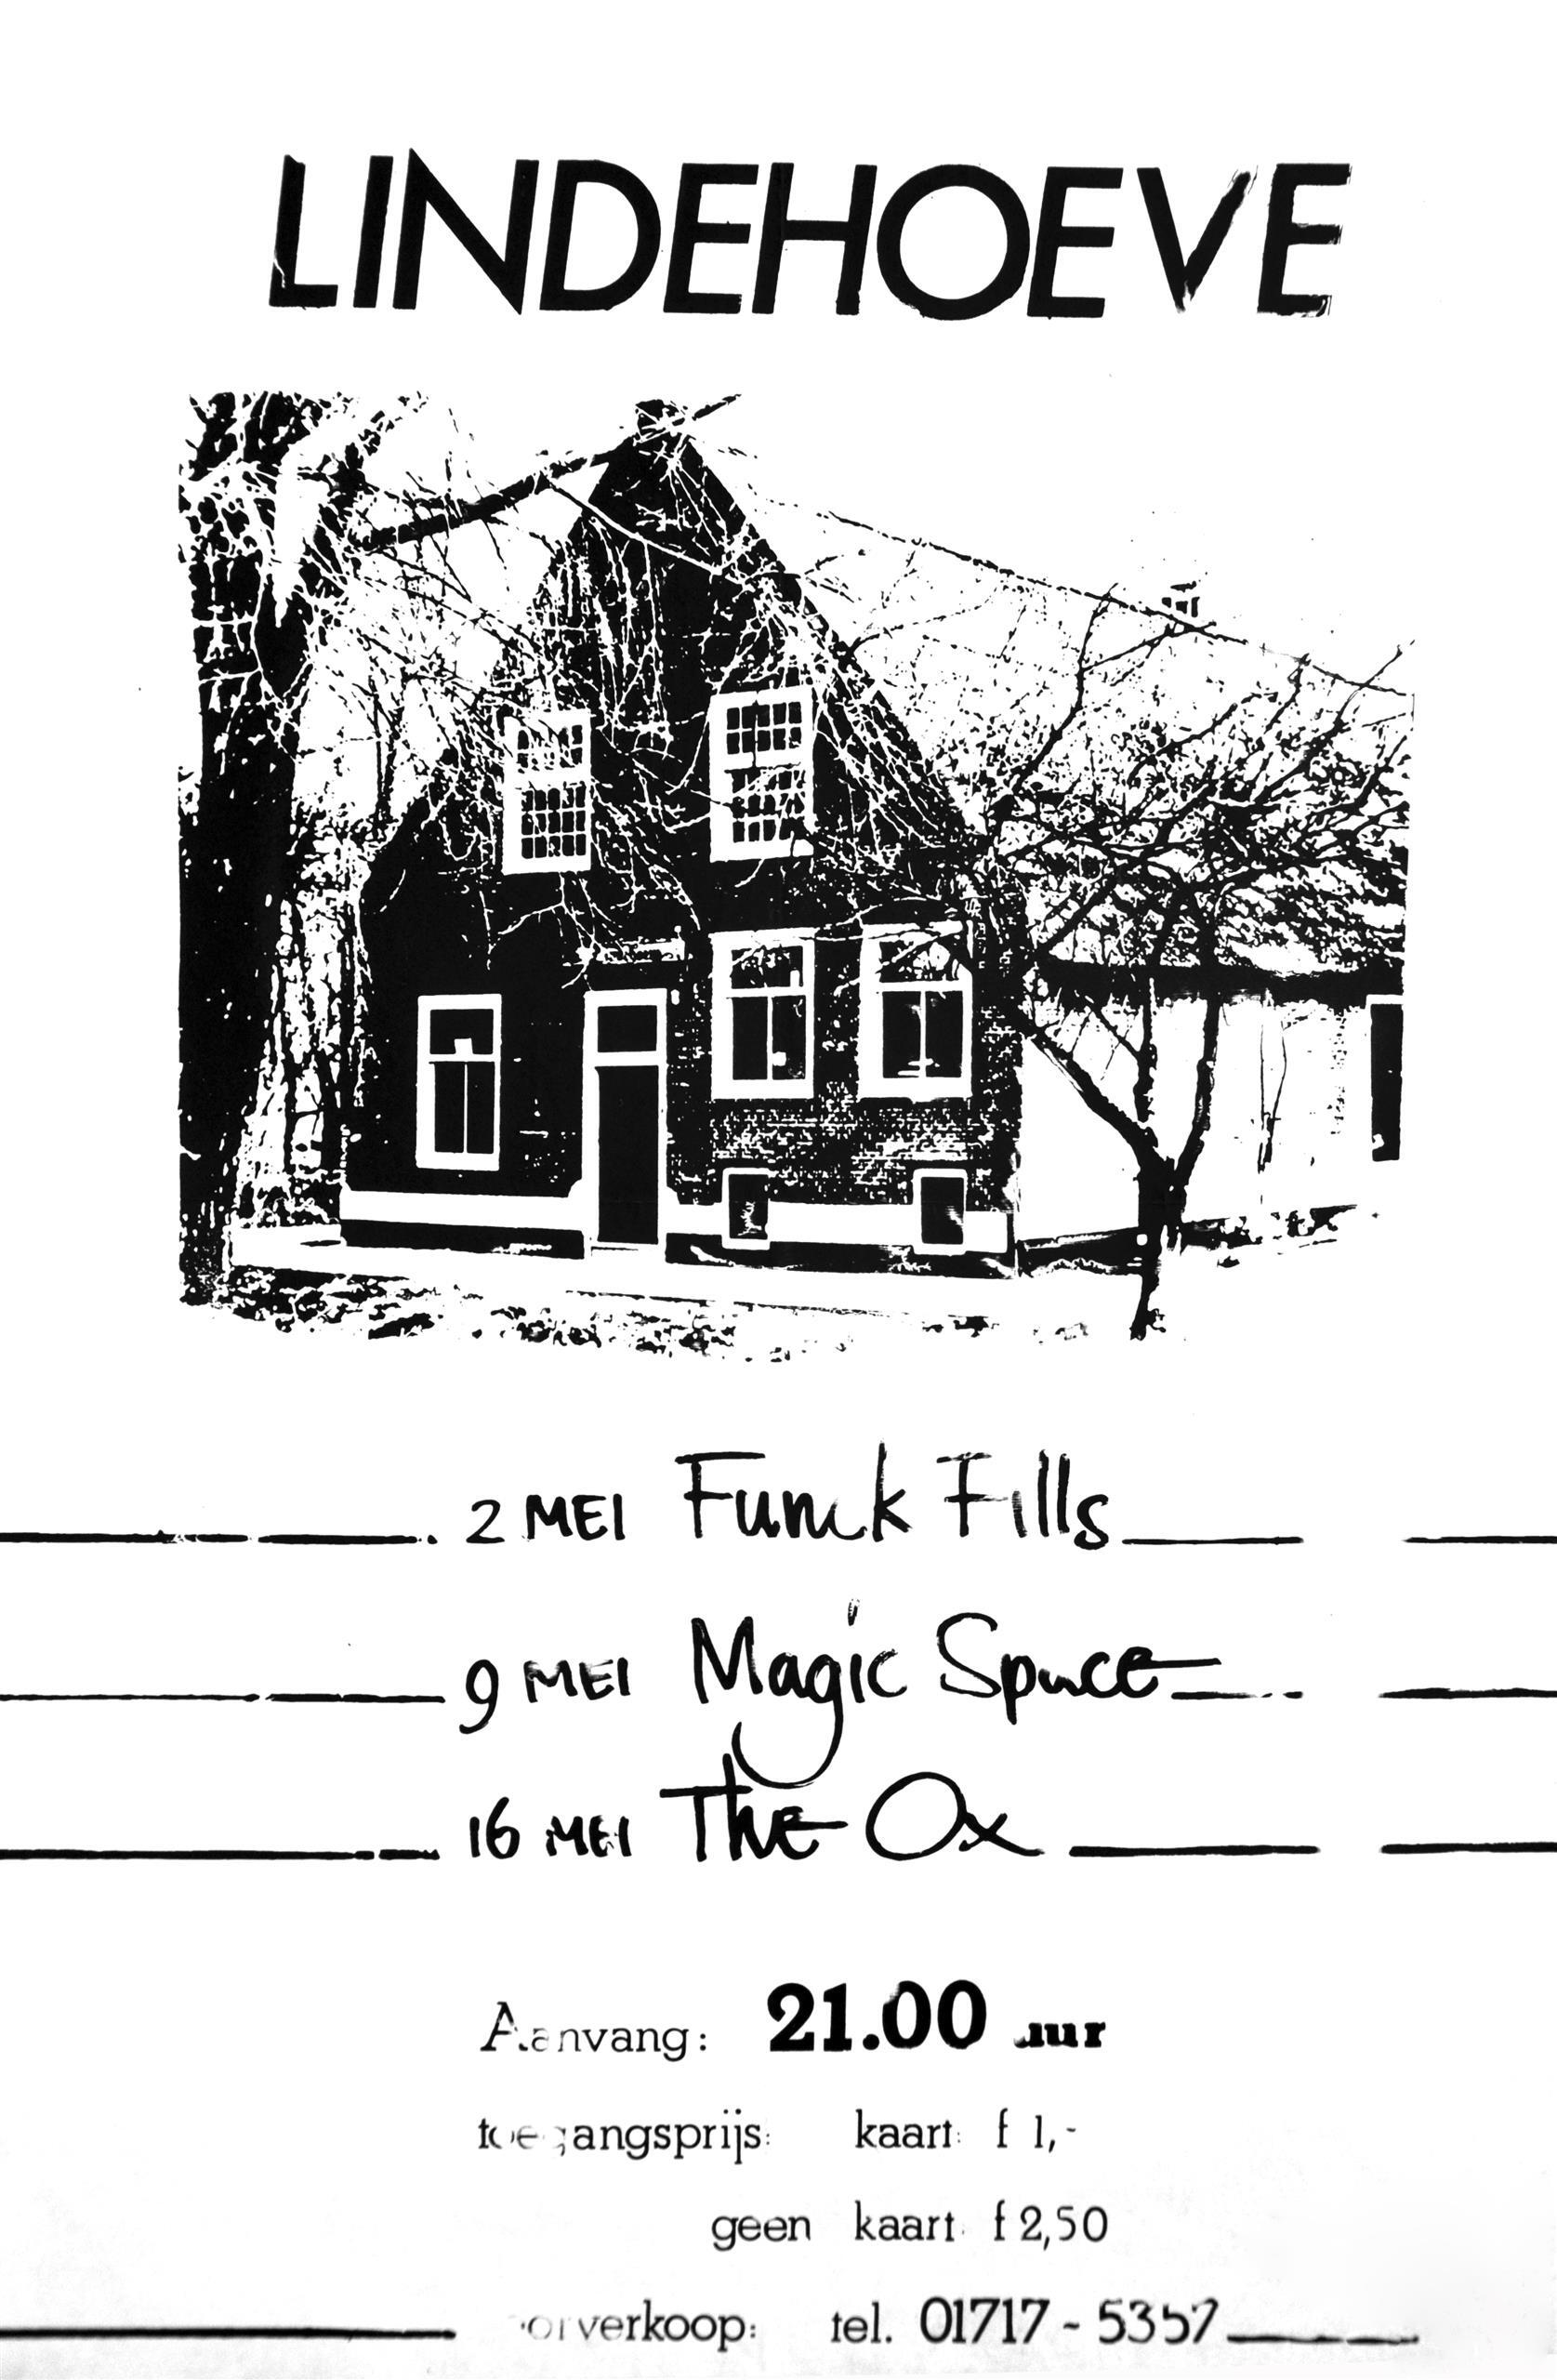 LINDEHOEVE
2 MEI Funck Fills
9 MEI Magic Space
16 MEI The Ox
Aanvang: 21.00 uur
toegangsprijs: kaart: f 1,-
geen kaart: f 2,50
voorverkoop: tel. 01717-5357